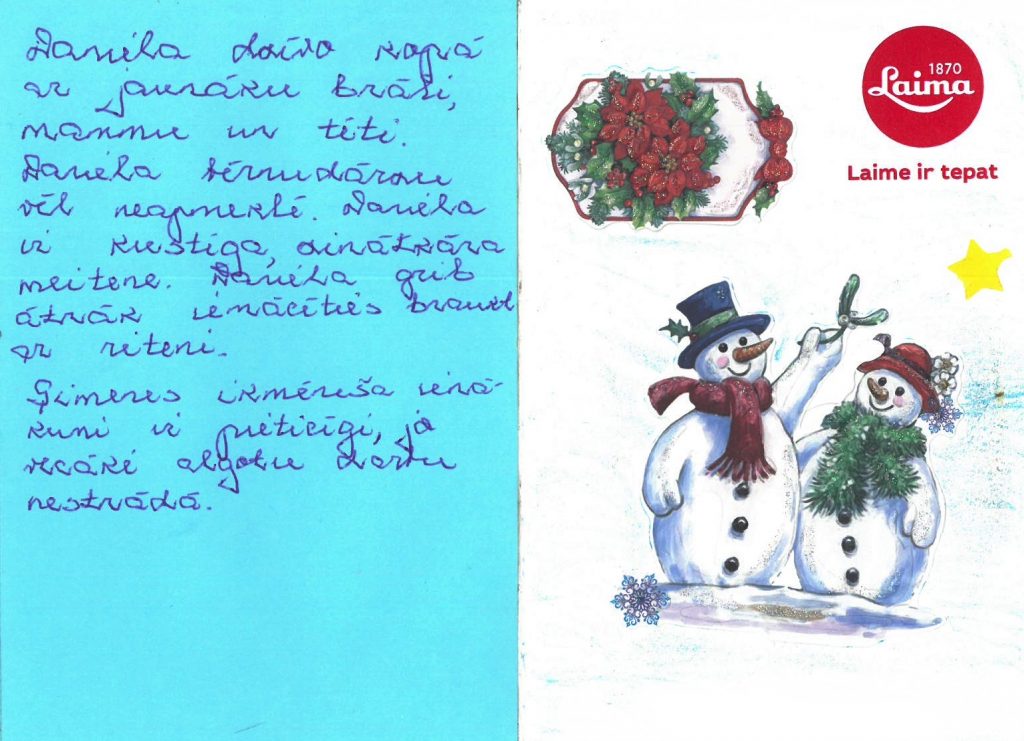 Daniela dzīvo kopā
ar jaunāku brāli,
mammu un tēti.
Daniela bērnudārzu
vēl neapmeklē. Daniela
ir kustīga, zinātkāra
meitene. Daniela grib
ātrāk iemācīties braukt
ar riteni.
Ģimenes ikmēneša ienā-
kumi ir pieticīgi, jo
vecāki algotu darbu
nestrādā.
1870
Laima
Laime ir tepat